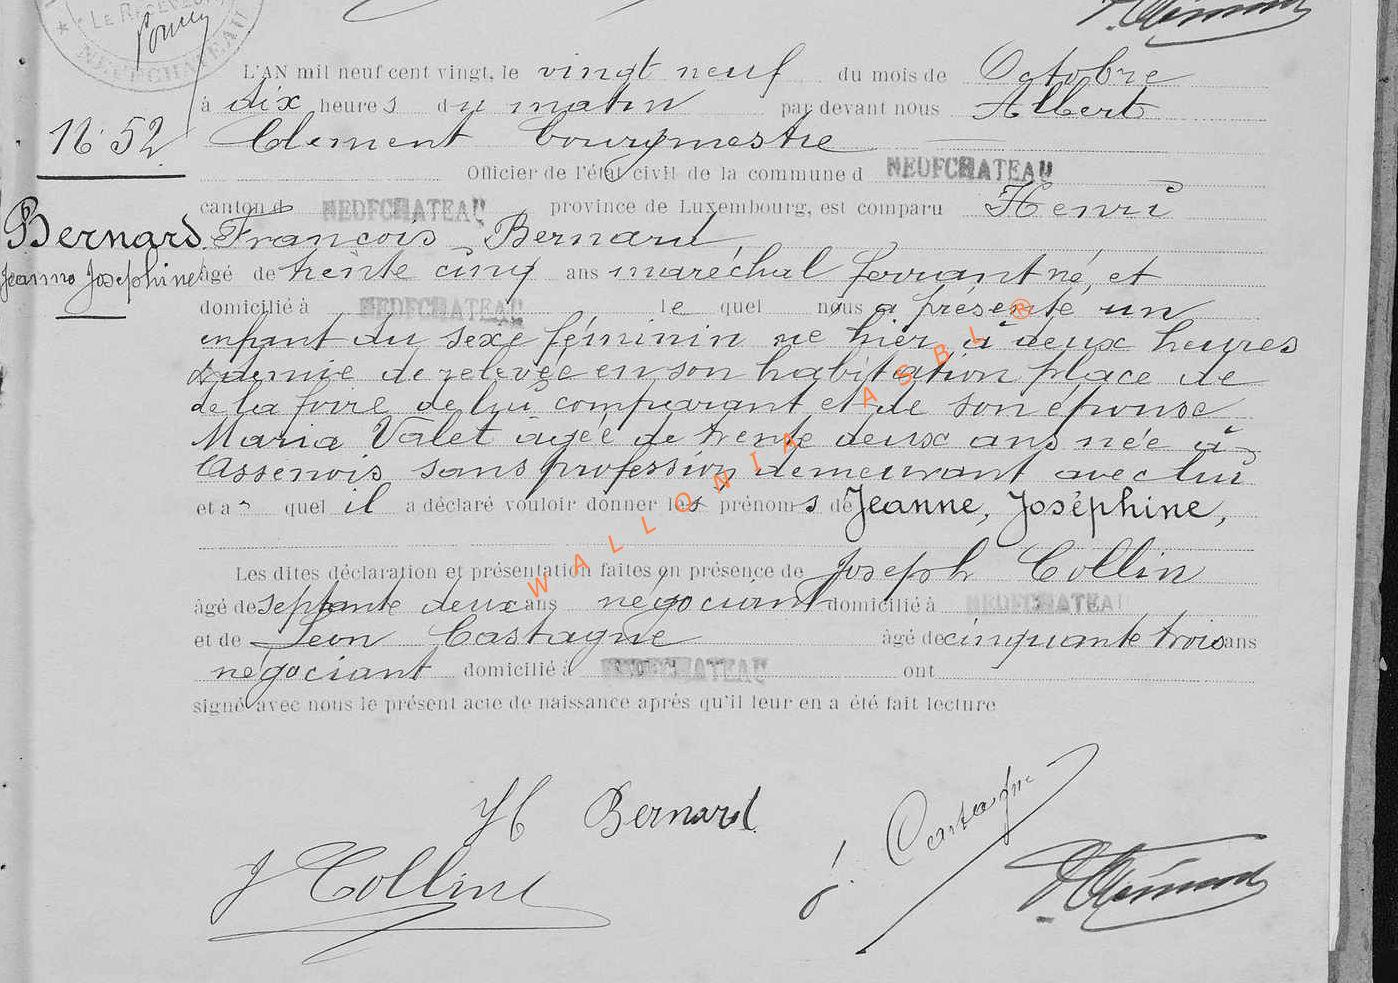 LE RECEVEUR
NEUFCHATEAU
L'AN mil neuf cent vingt, le vingt neuf du mois de Octobre
à dix heures du matin par devant nous Albert
N° 52 Clement bourgmestre
Officier de l'état civil de la commune d NEUFCHATEAU
canton d NEUFCHATEAU province de Luxembourg, est comparu Henri
Bernard François Bernard,
Jeanne Josephine âgé de trente cinq ans maréchal ferrant né, et
domicilié à NEUFCHATEAU le quel nous a présenté un
enfant du sexe féminin né hier à deux heures
& demie de relevée en son habitation place de
de la foire de lui comparant et de son épouse
Maria Valet agée de trente deux ans née à
Assenois sans profession demeurant avec lui
et a quel il a déclaré vouloir donner les prénoms de Jeanne, Joséphine,
Les dites déclaration et présentation faites en présence de Joseph Collin
âgé de septante deux ans négociant domicilié à NEUFCHATEAU
et de Léon Castagne âgé de cinquante trois ans
négociant domicilié à NEUFCHATEAU ont
signé avec nous le présent acte de naissance après qu'il leur en a été fait lecture
WALLONIA ASBL ®
H Bernard
Castagne
J Collin